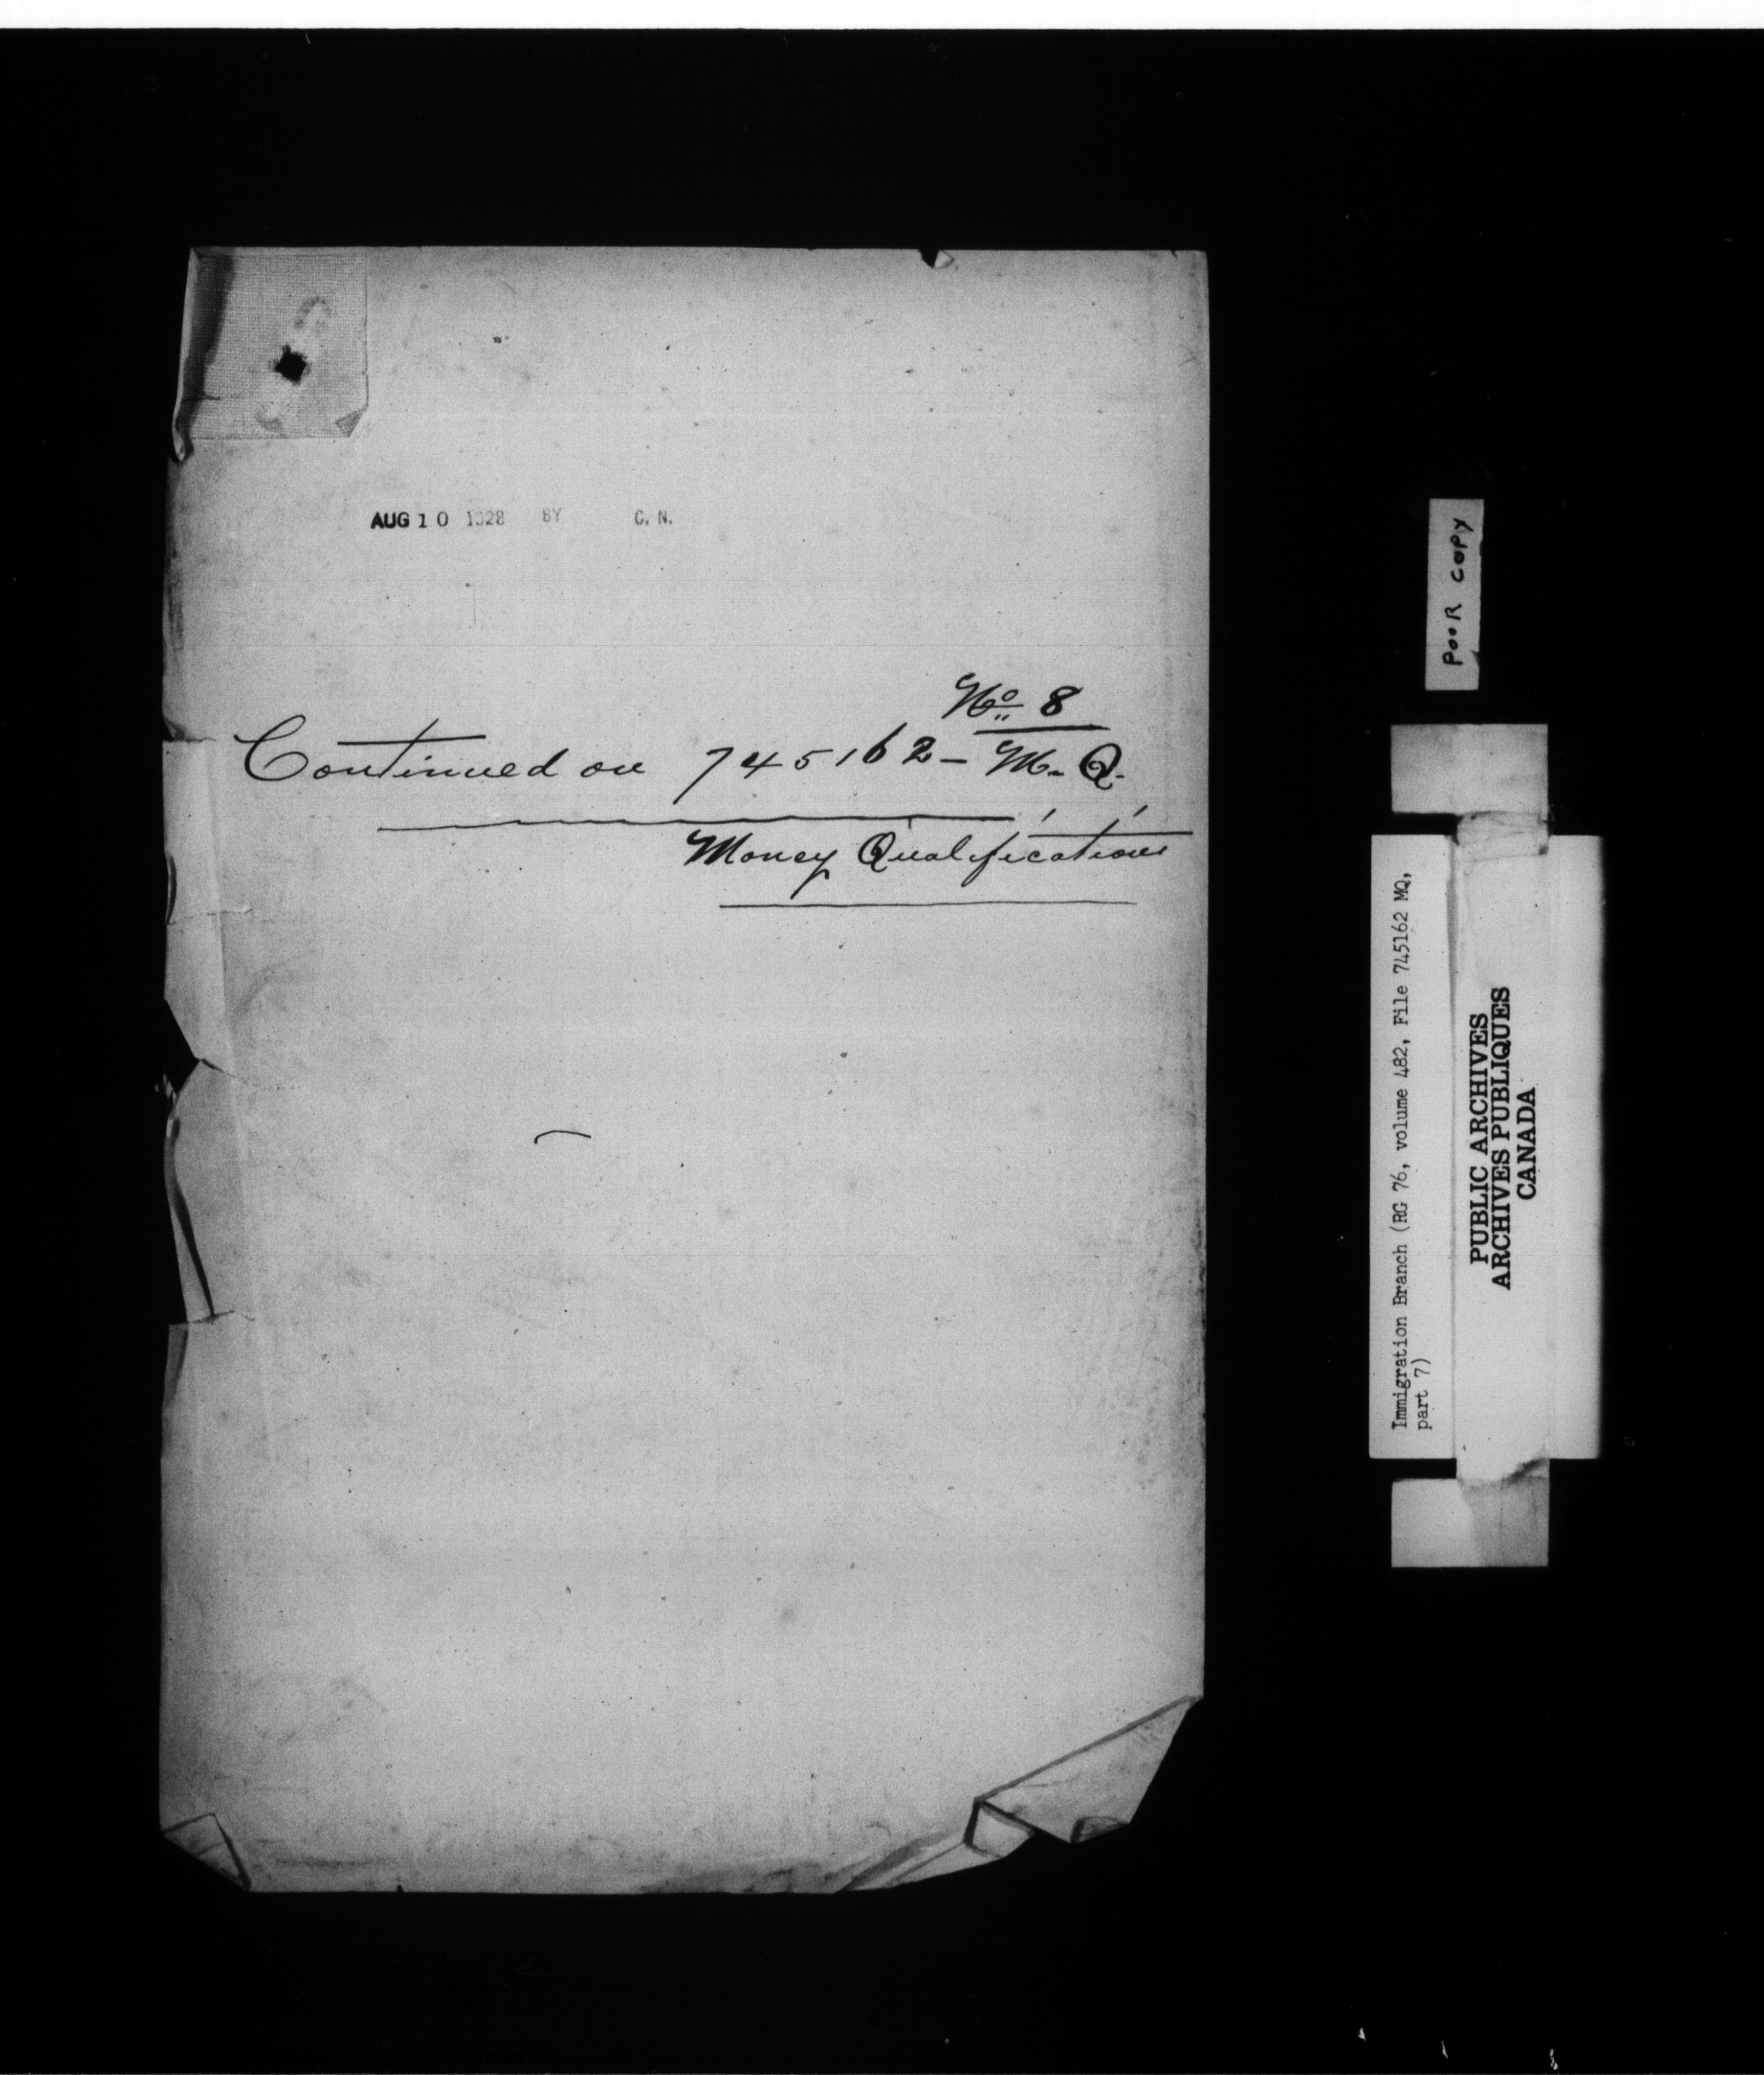 AUG 10 1928 BY C. N.
No 8
Continued on 745162 - M. Q.
Money Qualifications
POOR COPY
Immigration Branch (RG 76, volume 482, File 745162 MQ,
part 7)
PUBLIC ARCHIVES
ARCHIVES PUBLIQUES
CANADA